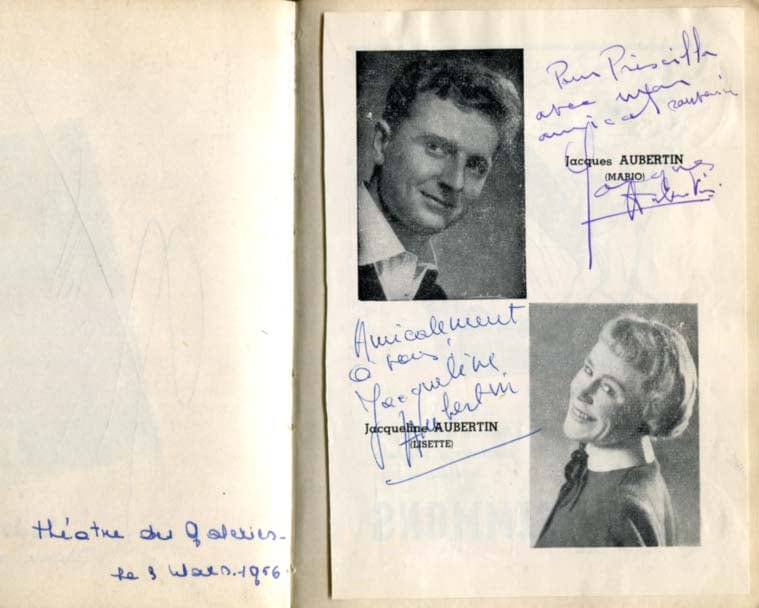 théâtre des Galeries-
le 3 Mars-1956
Pour Priscilla
avec mon
amical souvenir
Jacques AUBERTIN
(MARIO)
Jacques
Aubertin
Amicalement
à vous,
Jacqueline
Aubertin
Jacqueline AUBERTIN
(LISETTE)